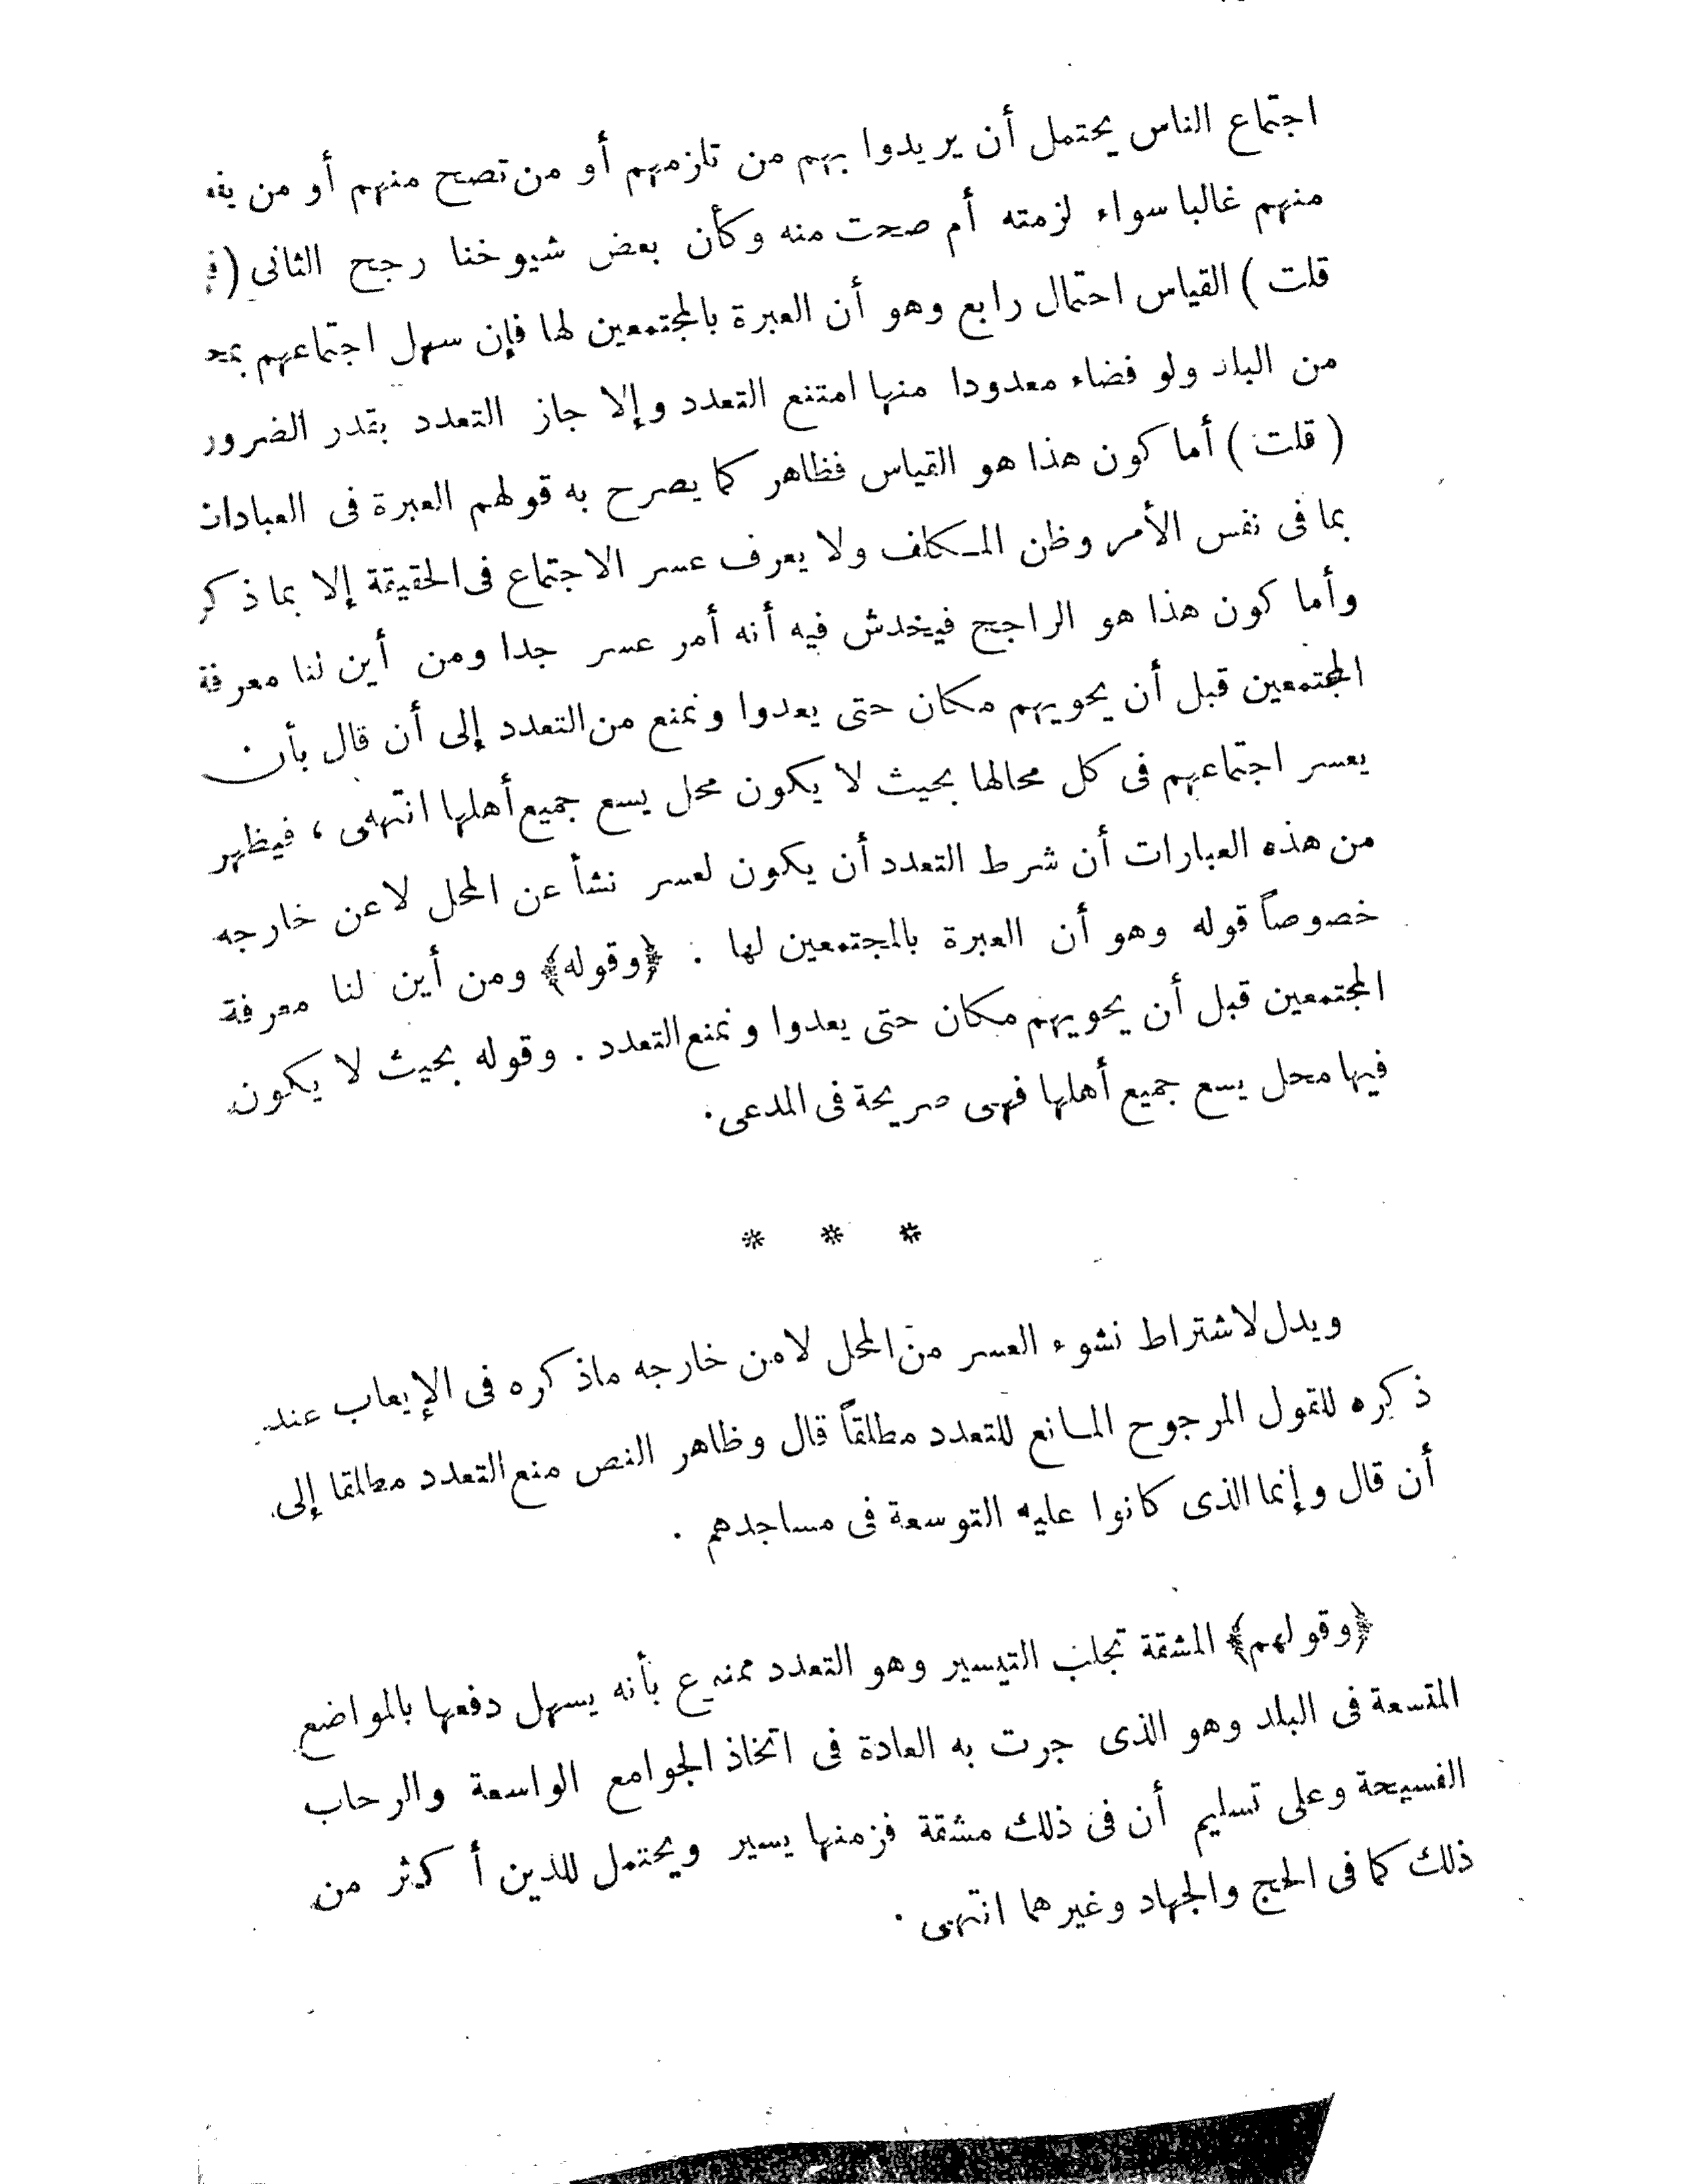 اجتماع الناس يحتمل أن يريدوا بهم من تلزمهم أو من تصح منهم أو من
منهم غالبا سواء لزمته أم صحت منه وكأن بعض شيوخنا رجح الثانى (
قلت ) القياس احتمال رابع وهو أن العبرة بالمجتمعين لها فإن سهل اجتماعهم
من البلد ولو فضاء معدودا منها امتنع التعدد وإلا جاز التعدد بقدر الضرور
( قلت ) أما كون هذا هو القياس فظاهر كما يصرح به قولهم العبرة فى العبادات
بما فى نفس الأمر وظن المكلف ولا يعرف عسر الاجتماع فى الحقيقة إلا بما ذكر
وأما كون هذا هو الراجح فيخدش فيه أنه أمر عسر جدا ومن أين لنا معرفة
المجتمعين قبل أن يحويهم مكان حتى يعدوا ونمنع من التعدد إلى أن قال بأن
يعسر اجتماعهم فى كل محالها بحيث لا يكون محل يسع جميع أهلها انتهى ، فيظهر
من هذه العبارات أن شرط التعدد أن يكون لعسر نشأ عن المحل لا عن خارجه
خصوصاً قوله وهو أن العبرة بالمجتمعين لها . ﴿وقوله﴾ ومن أين لنا معرفة
المجتمعين قبل أن يحويهم مكان حتى يعدوا ونمنع التعدد . وقوله بحيث لا يكون
فيها محل يسع جميع أهلها فهى صريحة فى المدعى .
* * *
ويدل لاشتراط نشوء العسر من المحل لا من خارجه ما ذكره فى الإيعاب عند
ذكره للقول المرجوح المانع للتعدد مطلقاً قال وظاهر النص منع التعدد مطلقا إلى
أن قال وإنما الذى كانوا عليه التوسعة فى مساجدهم .
﴿وقولهم﴾ المشقة تجلب التيسير وهو التعدد ممنوع بأنه يسهل دفعها بالمواضع
المتسعة فى البلد وهو الذى جرت به العادة فى اتخاذ الجوامع الواسعة والرحاب
الفسيحة وعلى تسليم أن فى ذلك مشقة فزمنها يسير ويحتمل للدين أكثر من
ذلك كما فى الحج والجهاد وغيرهما انتهى .